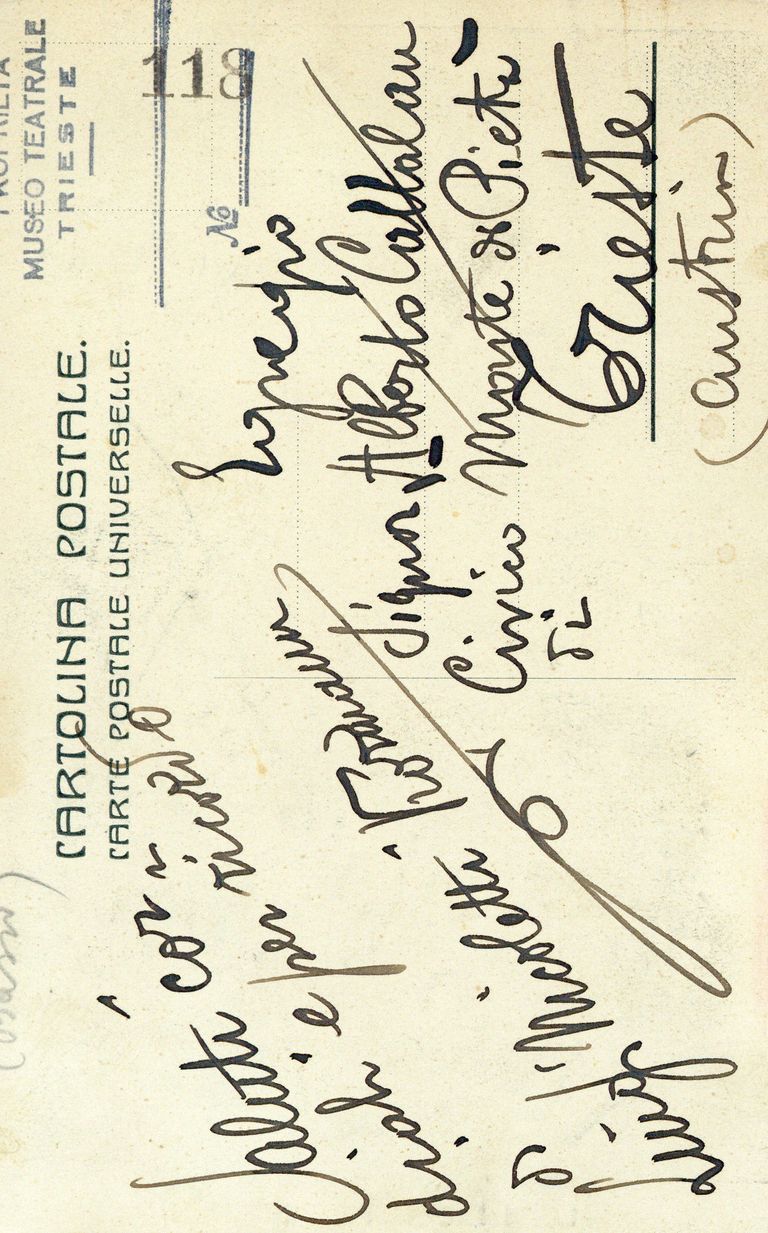 PROPRIETA
MUSEO TEATRALE
TRIESTE
No 118
CARTOLINA POSTALE.
CARTE POSTALE UNIVERSELLE.
Saluti cor=
diali e per ricordo
di Nicoletti
Luigi
Egregio
Signor Alberto Cattalan
Civico Monte di Pietà
di Trieste
(Austria)